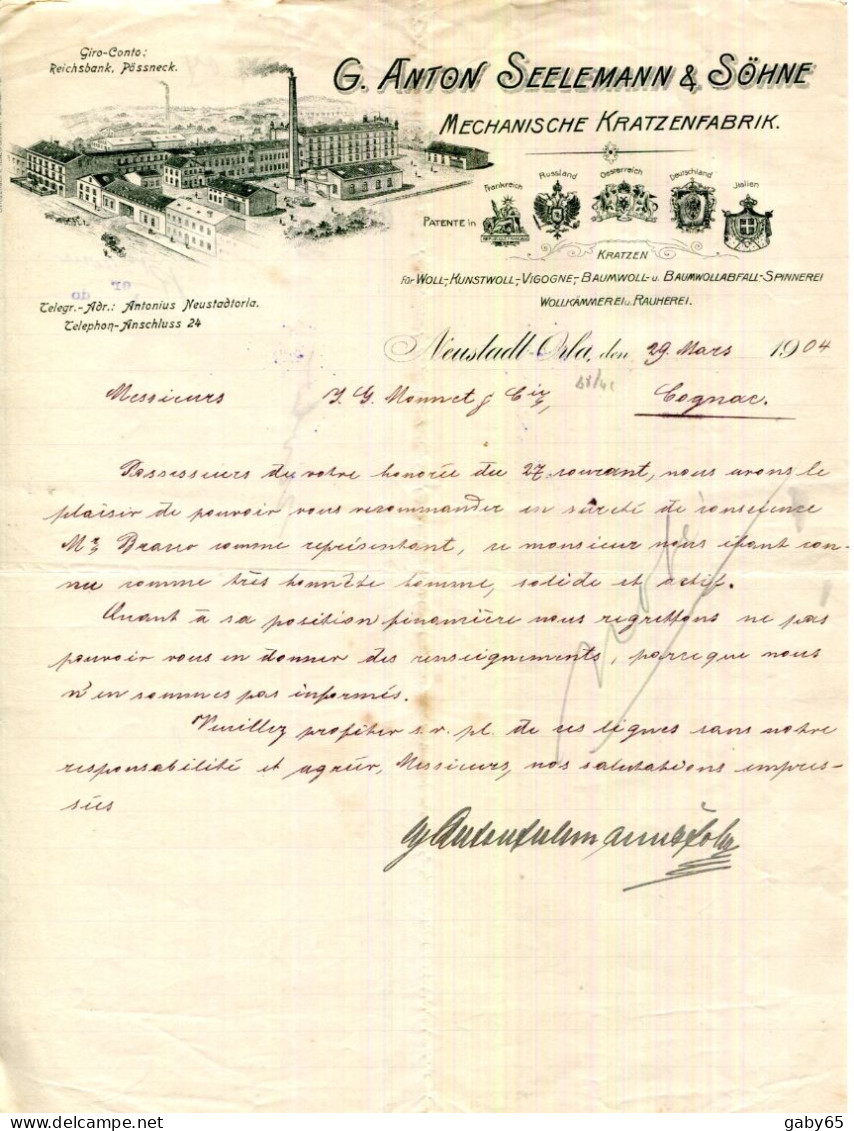 Giro-Conto:
Reichsbank, Pössneck.
G. Anton Seelemann & Söhne
Mechanische Kratzenfabrik.
Patente in
Frankreich
Russland
Oesterreich
Deutschland
Italien
Kratzen
für Woll-, Kunstwoll-, Vigogne-, Baumwoll- u. Baumwollabfall-Spinnerei
Wollkämmerei u. Rauherei.
Telegr.-Adr.: Antonius Neustadtorla.
Telephon-Anschluss 24
Neustadt-Orla, den 29 Mars 1904
Messieurs J. G. Monnet & Cie, Cognac.
Possesseurs du votre honorée du 27 courant, nous avons le
plaisir de pouvoir vous recommander en sûreté de conscience
Mr Braso comme représentant, ce monsieur nous étant con-
nu comme très honnête homme, solide et actif.
Quant à sa position financière nous regrettons ne pas
pouvoir vous en donner des renseignements, parceque nous
n'en sommes pas informés.
Veuillez profiter s. v. pl. de ces lignes sans notre
responsabilité et agréer, Messieurs, nos salutations empres-
sées
G Anton Seelemann & Söhne
gaby65